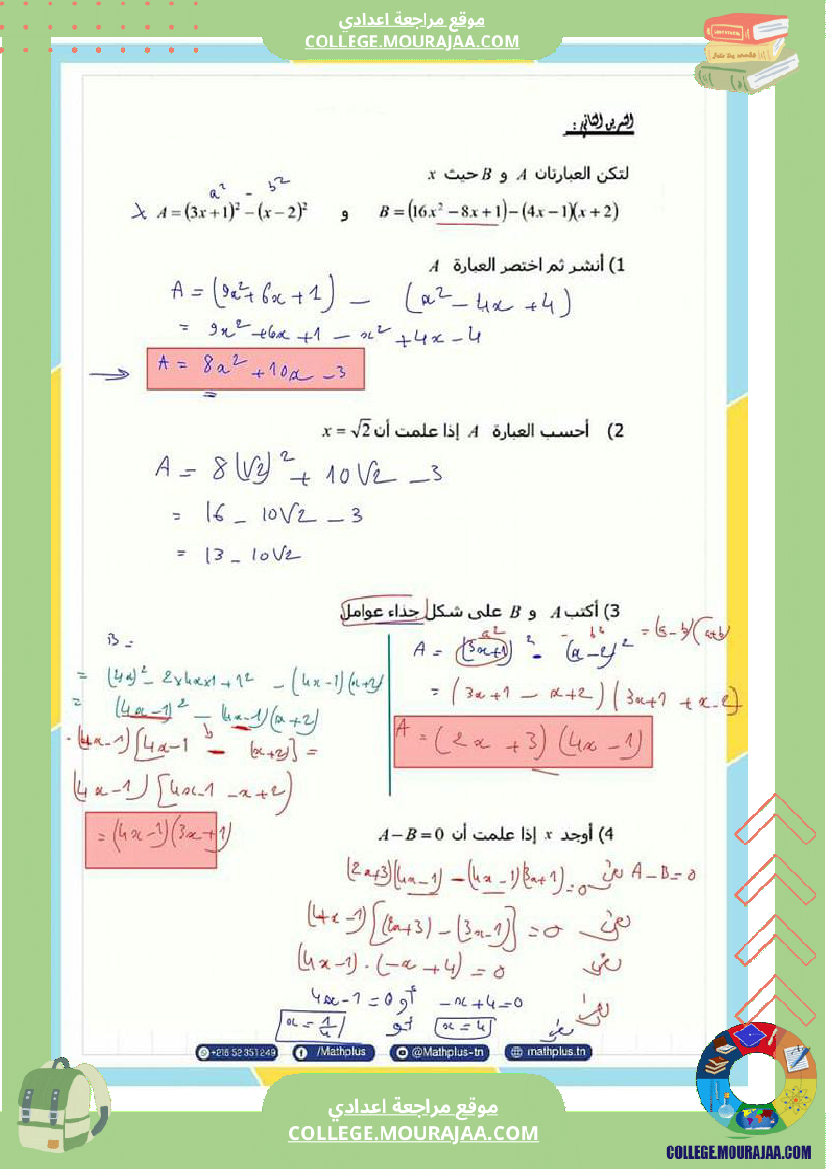 موقع مراجعة اعدادي
COLLEGE.MOURAJAA.COM
التمرين الثاني :
لتكن العبارتان A و B حيث x
a² - b²
A = (3x+1)² − (x−2)² و B = (16x² − 8x + 1) − (4x − 1)(x + 2)
1) أنشر ثم اختصر العبارة A
A = (9x² + 6x + 1) − (x² − 4x + 4)
= 9x² + 6x + 1 − x² + 4x − 4
→ A = 8x² + 10x − 3
2) أحسب العبارة A إذا علمت أن x = √2
A = 8(√2)² + 10√2 − 3
= 16 − 10√2 − 3
= 13 − 10√2
3) أكتب A و B على شكل جذاء عوامل
a² - b² = (a−b)(a+b)
A = (3x+1)² − (x−2)²
= (3x+1 − x+2)(3x+1 + x−2)
A = (2x + 3)(4x − 1)
B =
= (4x)² − 2×4x×1 + 1² − (4x−1)(x+2)
= (4x−1)² − (4x−1)(x+2)
(4x−1)[4x−1 − (x+2)] =
(4x−1)[4x−1 −x+2)
= (4x−1)(3x+1)
4) أوجد x إذا علمت أن A−B=0
A−B=0 يعني (2x+3)(4x−1) − (4x−1)(3x+1) = 0
يعني (4x−1)[(2x+3) − (3x−1)] = 0
يعني (4x−1)·(−x+4) = 0
يعني 4x−1=0 أو −x+4=0
يعني x = 1/4 أو x = 4
+216 52 351 249
/Mathplus
@Mathplus-tn
mathplus.tn
موقع مراجعة اعدادي
COLLEGE.MOURAJAA.COM
COLLEGE.MOURAJAA.COM